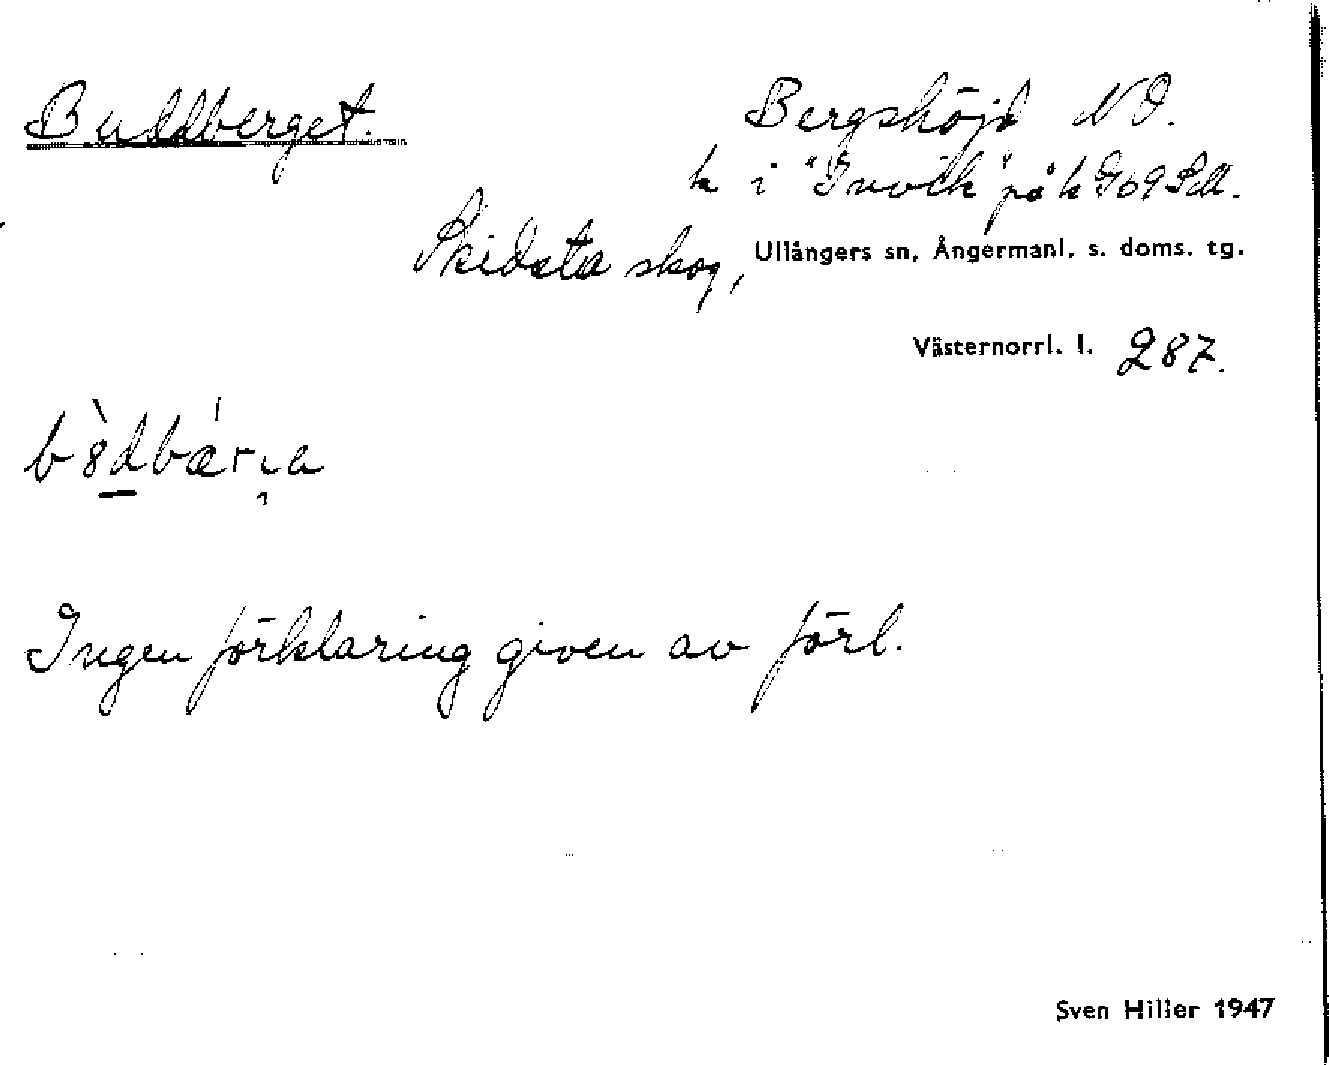 Buddberget.
Bergshöjd NO.
k i "Invik" på k G69SM.
Skidsta skog, Ullångers sn, Ångermanl. s. doms. tg.
Västernorrl. l. 287.
Ingen förklaring given av förl.
Sven Hiller 1947